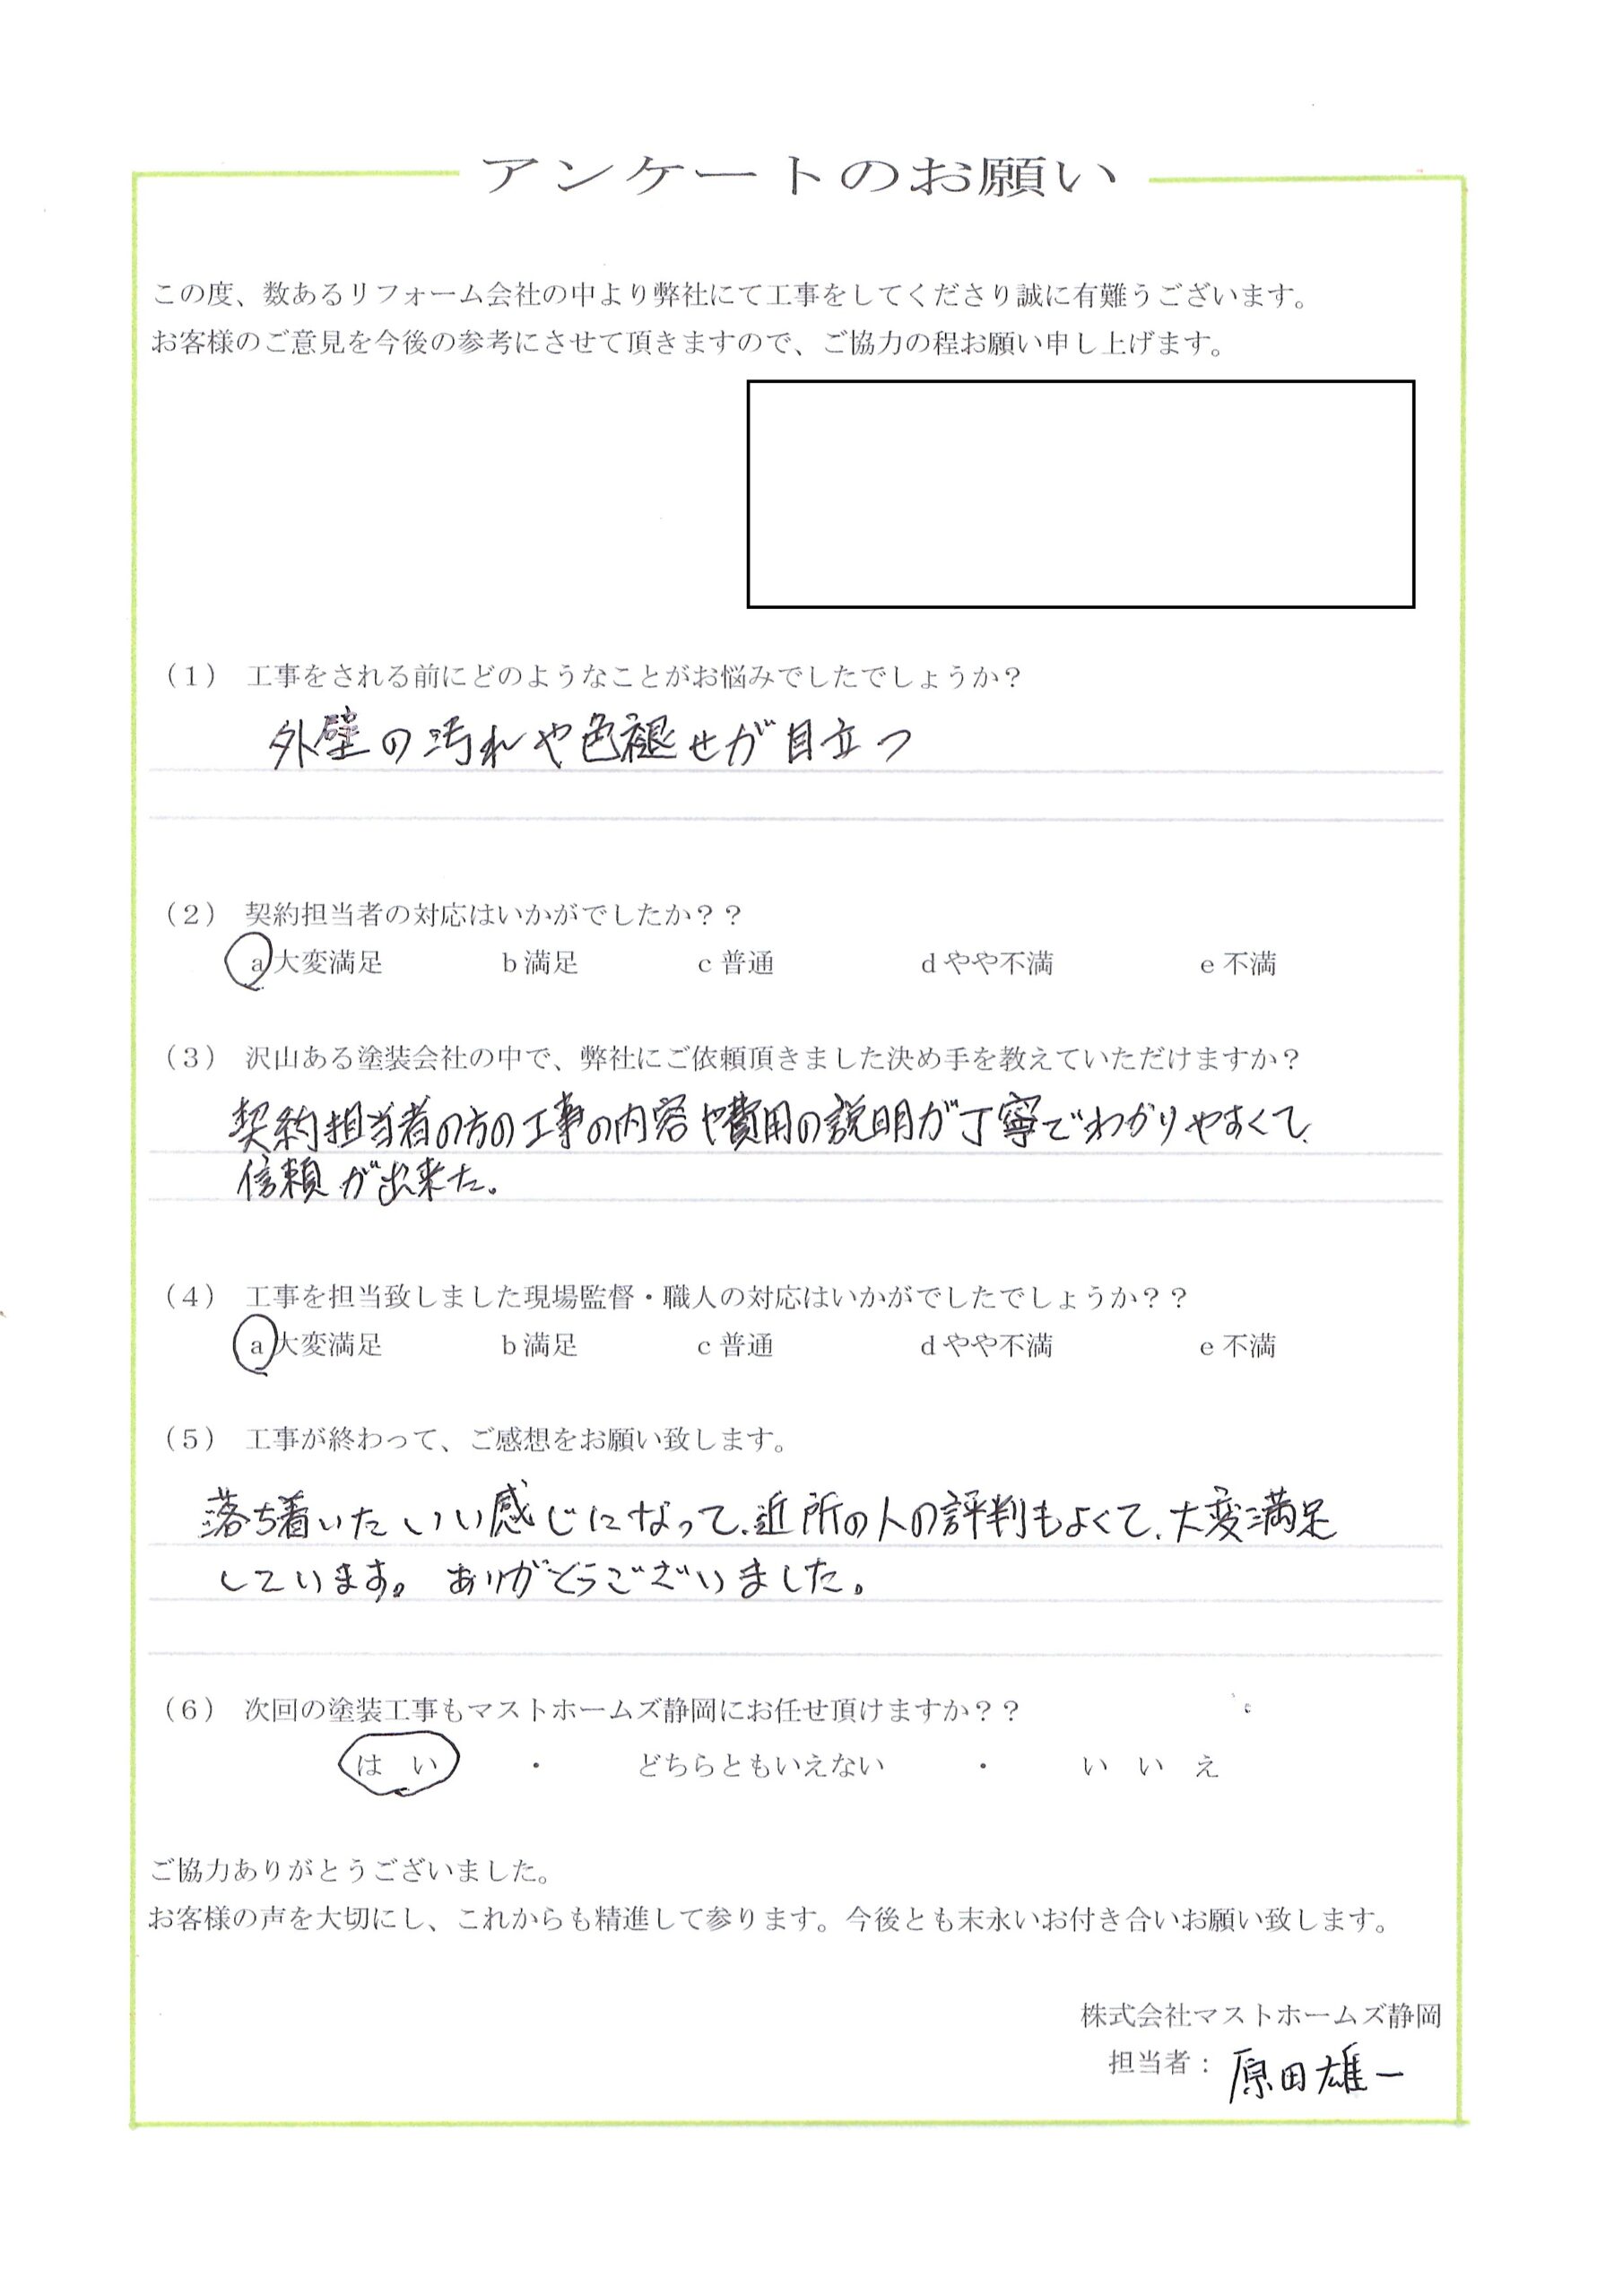 アンケートのお願い
この度、数あるリフォーム会社の中より弊社にて工事をしてくださり誠に有難うございます。
お客様のご意見を今後の参考にさせて頂きますので、ご協力の程お願い申し上げます。
（1） 工事をされる前にどのようなことがお悩みでしたでしょうか？
外壁の汚れや色褪せが目立つ
（2） 契約担当者の対応はいかがでしたか？？
a 大変満足 b 満足 c 普通 d やや不満 e 不満
（3） 沢山ある塗装会社の中で、弊社にご依頼頂きました決め手を教えていただけますか？
契約担当者の方の工事の内容や費用の説明が丁寧でわかりやすくて、
信頼が出来た。
（4） 工事を担当致しました現場監督・職人の対応はいかがでしたでしょうか？？
a 大変満足 b 満足 c 普通 d やや不満 e 不満
（5） 工事が終わって、ご感想をお願い致します。
落ち着いたいい感じになって、近所の人の評判もよくて、大変満足
しています。ありがとうございました。
（6） 次回の塗装工事もマストホームズ静岡にお任せ頂けますか？？
は い ・ どちらともいえない ・ い い え
ご協力ありがとうございました。
お客様の声を大切にし、これからも精進して参ります。今後とも末永いお付き合いお願い致します。
株式会社マストホームズ静岡
担当者：原田雄一